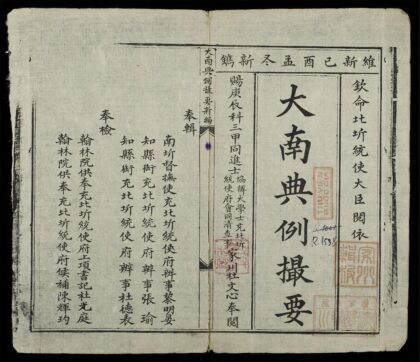 維新己酉孟冬新鐫
欽命北圻統使大臣閱依
大南典例撮要
賜庚辰科三甲同進士
協辦大學士充北圻
統使府會同清查
家川杜文心奉閱
大南典例撮要新編
奉輯
南圻督撫使充北圻統使府辦事黎明
知縣銜充北圻統使府辦事張瑜
知縣銜充北圻統使府辦事杜德表
奉檢
翰林院供奉充北圻統使府上項書記杜光庭
翰林院供奉充北圻統使府候補陳輝